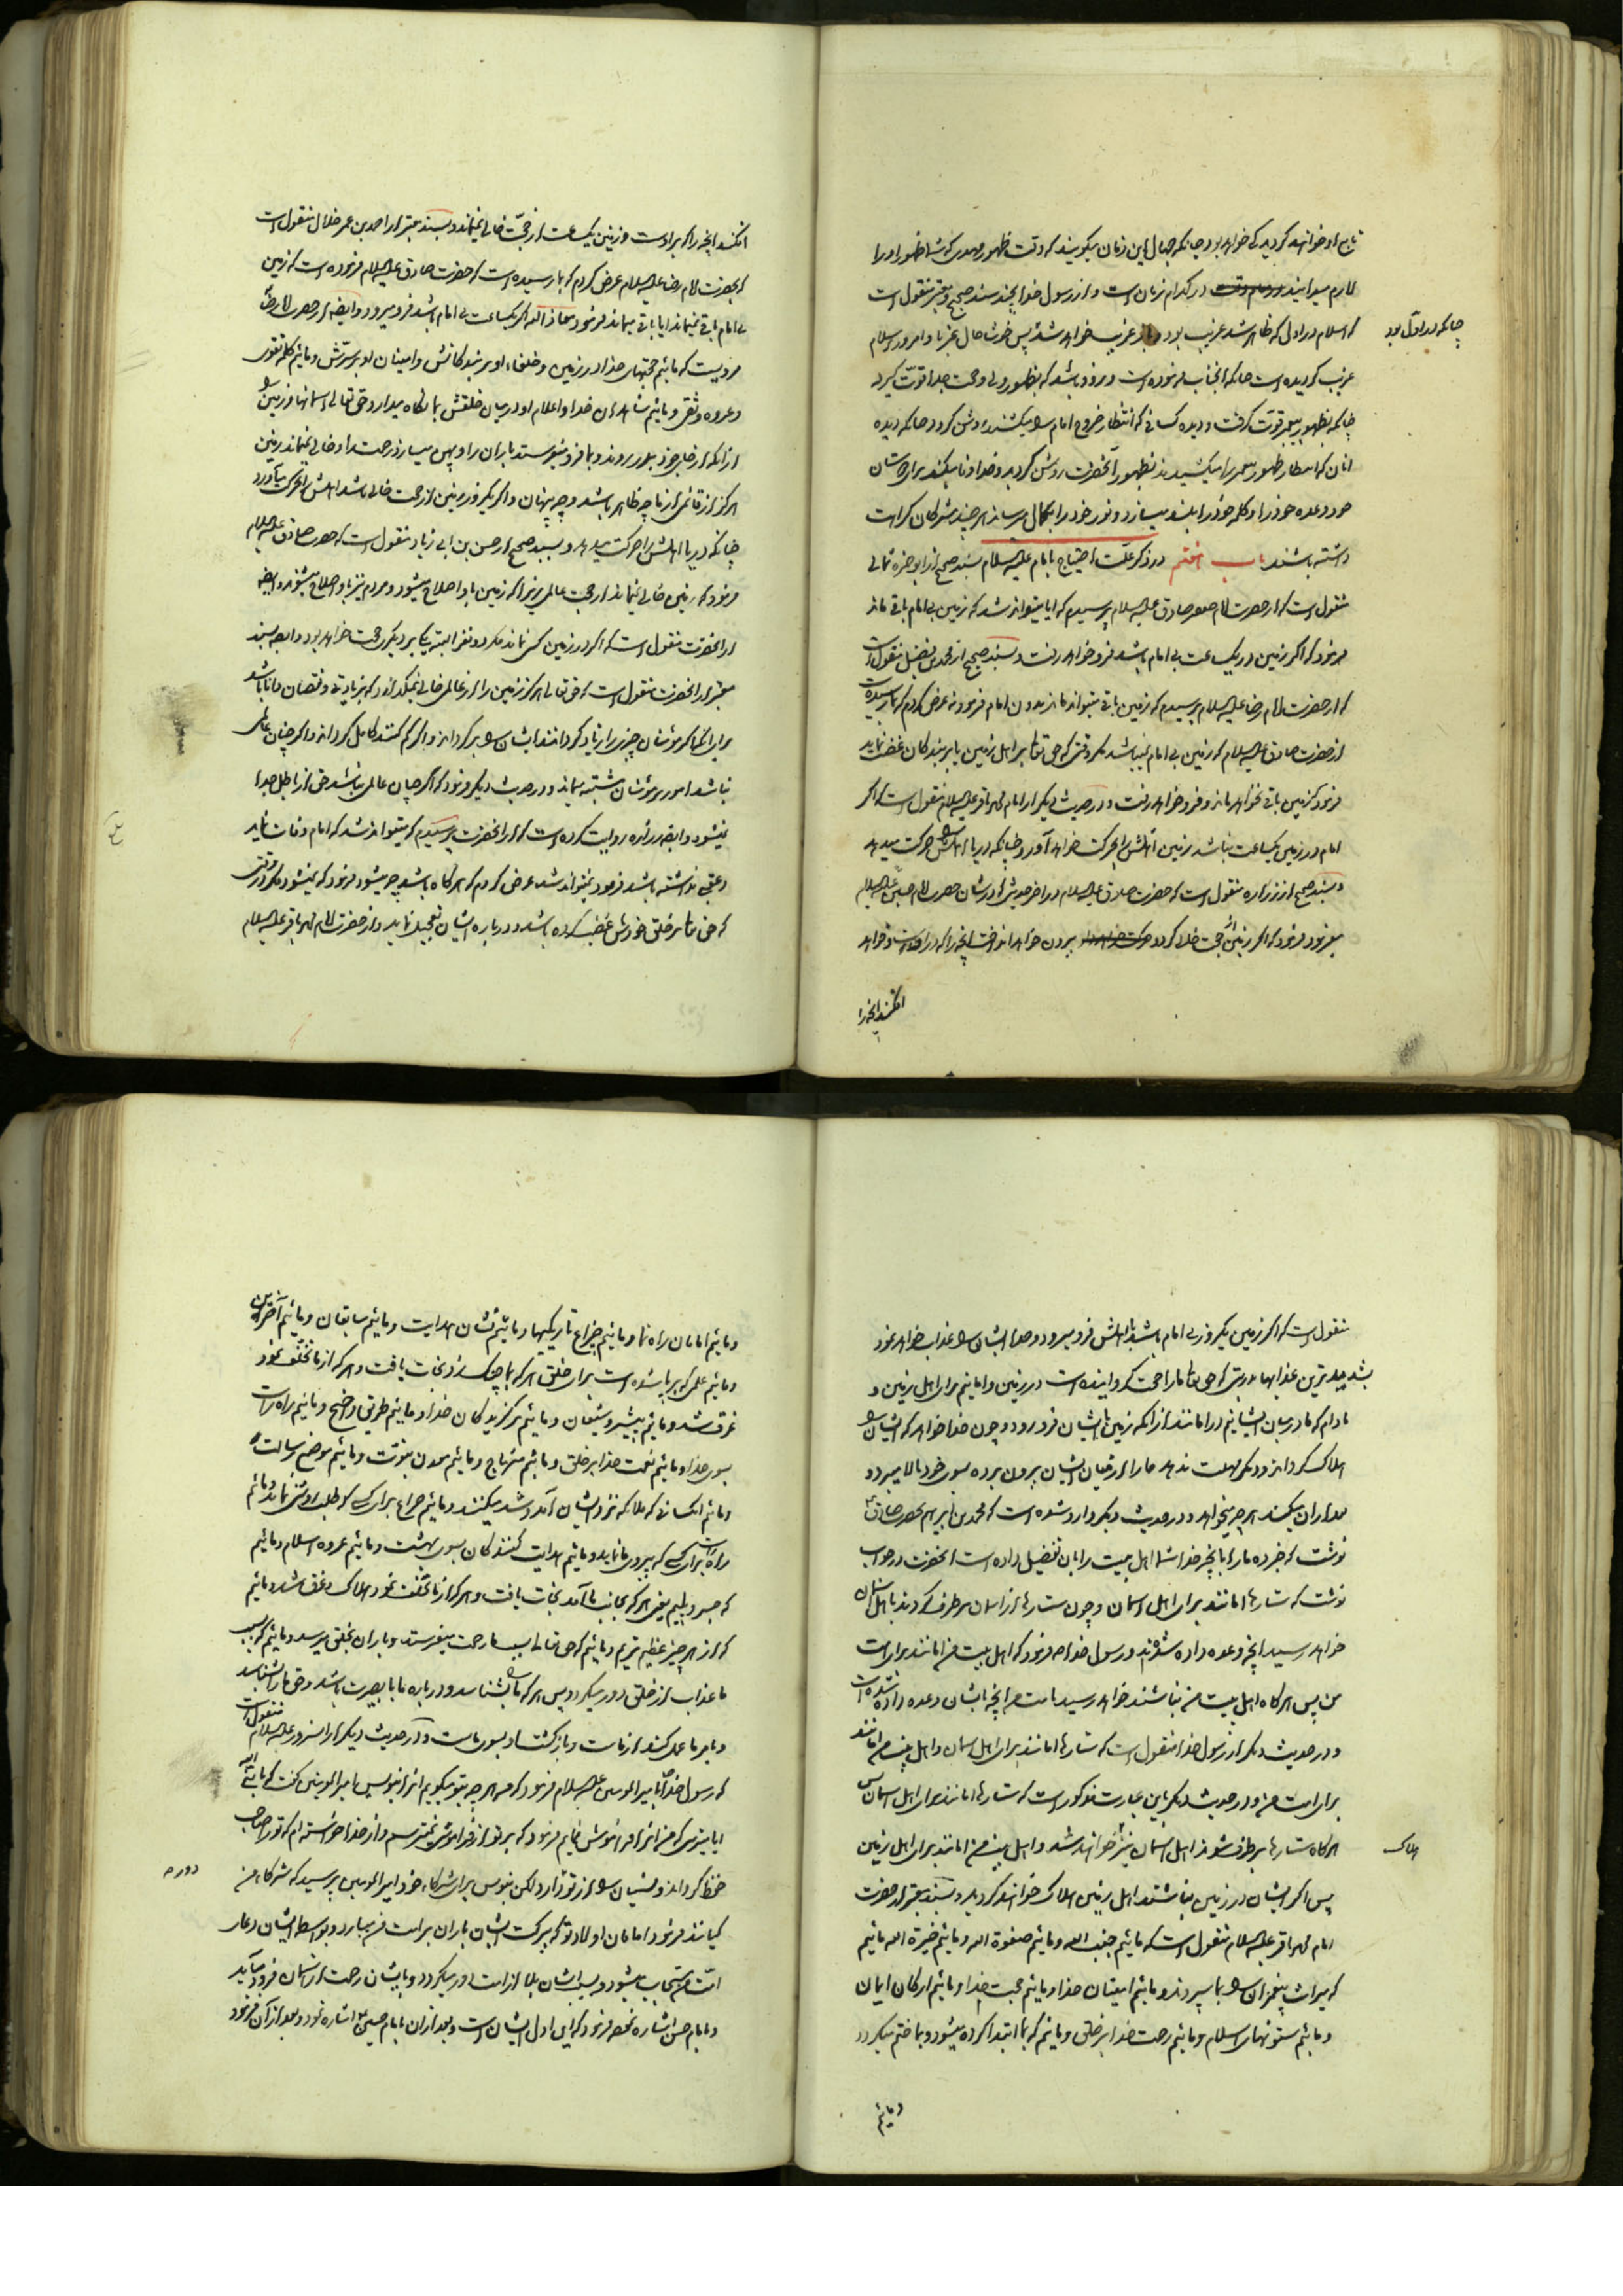 تابع او خواهند گردید کی خواهد بود چنانکه جهال این زمان میگویند که وقت ظهور مهدی که شما ظهور او را
لازم میدانید در کدام زمان است و از رسول خدا بچند سند صحیح و معتبر منقول است
که اسلام در اول که ظاهر شد غریب بود و باز غریب خواهد شد پس خوشا حال غربا و امروز اسلام
چنانکه در اول بود
غریب گردیده است چنانکه آنجناب فرموده است و زود باشد که بظهور ولی و حجت خدا قوت گیرد
چنانکه بظهور پیغمبر قوت گرفت و دیده کسانی که انتظار خروج امام را میکشند روشن گردد چنانکه دیده
آنان که انتظار ظهور پیغمبر را میکشیدند بظهور آنحضرت روشن گردید و خدا وفا میکند برای دوستان
خود وعده خود را و کلمه خود را بلند میسازد و نور خود را بکمال میرساند هر چند مشرکان کراهت
داشته باشند باب هفتم در ذکر علت احتیاج بامام علیه السلام بسند صحیح از ابو حمزه ثمالی
منقول است که از حضرت امام جعفر صادق علیه السلام پرسیدم که آیا میتواند شد که زمین بی امام باقی ماند
فرمود که اگر زمین در یکساعت بی امام باشد فرو خواهد رفت و بسند صحیح از محمد بن فضیل منقول است
که از حضرت امام رضا علیه السلام پرسیدم که زمین باقی میتواند ماند بدون امام فرمود نه عرض کردم که بما رسیده است
از حضرت صادق علیه السلام که زمین بی امام نمیباشد مگر وقتی که حق تعالی بر اهل زمین یا بر بندگان غضب نماید
فرمود که زمین باقی نخواهد ماند و فرو خواهد رفت و در حدیث دیگر از امام محمد باقر علیه السلام منقول است که اگر
امام در زمین یکساعت نباشد زمین اهلش را بحرکت خواهد آورد چنانکه دریا اهلش را حرکت میدهد
و بسند صحیح از زراره منقول است که حضرت صادق علیه السلام در آخر حدیثی که در شان حضرت امام حسین علیه السلام
میفرمود فرمود که اگر زمین از حجت خالی گردد بیرون خواهد انداخت آنچه را که در اوست و خواهد
افکند آنچه را
افکند آنچه را که بر اوست و زمین یکساعت از حجت خالی نمیماند و بسند معتبر از احمد بن عمر حلال منقول است
که بحضرت امام رضا علیه السلام عرض کردم که بما رسیده است که حضرت صادق علیه السلام فرموده است که زمین
بی امام باقی نمیماند آیا باقی میماند فرمود معاذ الله اگر یکساعت بی امام باشد فرو میرود و ایضا از حضرت امام رضا
مرویست که مائیم حجتهای خدا در زمین و خلفاء او بر بندگانش و امینان او بر سرش و مائیم کلمه تقوی
و عروه وثقی و مائیم شاهدان خدا و اعلام او در میان خلقش بما نگاه میدارد حق تعالی آسمانها و زمین را
از آنکه از جای خود بدر روند و بما فرو میفرستد باران را و پهن میسازد رحمت را و خالی نمیماند زمین
هرگز از قائمی از ما چه ظاهر باشد و چه پنهان و اگر یکروز زمین از حجت خالی باشد اهلش را بحرکت میآورد
چنانکه دریا اهلش را حرکت میدهد و بسند صحیح از حسن بن ابی زیاد منقول است که حضرت صادق علیه السلام
فرمود که زمین خالی نمیماند از حجت عالمی زیرا که زمین باو اصلاح میشود و مردم نیز باو اصلاح میشوند و ایضا
از آنحضرت منقول است که اگر در زمین کسی نماند مگر دو نفر البته یکی بر دیگری حجت خواهد بود و ایضا بسند
معتبر از آنحضرت منقول است که حق تعالی هرگز زمین را از عالمی خالی نمیگذارد که بزیادتی و نقصان دانا باشد
برای آنکه اگر مؤمنان چیزی را زیاد گردانند ایشان را برگرداند و اگر کم کنند کامل گرداند و اگر چنان عالمی
نباشد امور بر مؤمنان مشتبه میماند و در حدیث دیگر فرمود که اگر چنان عالمی نباشد حق از باطل جدا
نمیشود و ایضا زراره روایت کرده است که از آنحضرت پرسیدم که میتواند شد که امام وفات نماید
و عقبی نداشته باشد فرمود نمیتواند شد عرض کردم که هر گاه باشد چه میشود فرمود که نمیشود مگر وقتی
که حق تعالی بر خلق خودش غضب کرده باشد و در باره ایشان تعجیل نماید و از حضرت امام محمد باقر علیه السلام
منقول است که اگر زمین یکروز بی امام باشد با اهلش فرو میرود و خدا ایشان را عذاب خواهد نمود
بشدیدترین عذابها بدرستی که حق تعالی ما را حجت گردانیده است در زمین و امانیم برای اهل زمین و
مادام که ما در میان ایشانیم در امانند از آنکه زمین با ایشان فرو رود و چون خدا خواهد که ایشان را
هلاک گرداند و دیگر مهلت ندهد ما را از میان ایشان بیرون برده بسوی خود بالا میبرد و
بعد از آن میکند هر چه میخواهد و در حدیث دیگر وارد شده است که محمد بن ابراهیم بحضرت صادق
نوشت که خبر ده ما را بآنچه خدا شما اهل بیت را بآن تفضیل داده است آنحضرت در جواب
نوشت که ستارها امانند برای اهل آسمان و چون ستارها از آسمان برطرف گردند باهل آسمان
خواهد رسید آنچه وعده داده شدند و رسول خدا ص فرمود که اهل بیت من امانند برای امت
من پس هر گاه اهل بیت من نباشند خواهد رسید بامت من آنچه بایشان وعده داده شده است
و در حدیث دیگر از رسول خدا منقول است که ستارها امانند برای اهل آسمان و اهل بیت من امانند
برای امت من و در حدیث دیگر باین عبارت مذکور است که ستارها امانند برای اهل آسمان پس
هر گاه ستارها برطرف شوند اهل آسمان نیز خواهند شد و اهل بیت من امانند برای اهل زمین
هلاک
پس اگر ایشان در زمین نباشند اهل زمین هلاک خواهند گردید و بسند معتبر از حضرت
امام محمد باقر علیه السلام منقول است که مائیم جنب الله و مائیم صفوة الله و مائیم خیرة الله مائیم
که میراث پیغمبران را بما سپردند و مائیم امینان خدا و مائیم حجت خدا و مائیم ارکان ایمان
و مائیم ستونهای اسلام و مائیم رحمت خدا بر خلق و مائیم که بما ابتدا کرده میشود و بما ختم میگردد
و مائیم
و مائیم امامان راه نما و مائیم چراغ تاریکیها و مائیم نشان هدایت و مائیم سابقان و مائیم آخرین
و مائیم علمی که برپا شده است برای خلق هر که بما چنگ زد نجات یافت و هر که از ما تخلف نمود
غرق شد و مائیم پیشرو شیعیان و مائیم برگزیدگان خدا و مائیم طریق واضح و مائیم راه راست
بسوی خدا و مائیم نعمت خدا بر خلق و مائیم منهاج و مائیم معدن نبوت و مائیم موضع رسالت
و مائیم آنکسانی که ملائکه نزد ایشان آمد و شد میکنند و مائیم چراغ برای کسی که طلب روشنی نماید و مائیم
راه برای کسی که پیروی ما نماید و مائیم هدایت کنندگان بسوی بهشت و مائیم عروه اسلام و مائیم
که جسر و پلیم یعنی هر که بجانب ما آمد نجات یافت و هر که از ما تخلف نمود هلاک و غرق شد و مائیم
که از هر چیز عظیم تریم و مائیم که حق تعالی بسبب ما رحمت میفرستد و باران بخلق میرسد و مائیم که بسبب
ما عذاب از خلق دور میگردد پس هر که ما را بشناسد و در باره ما با بصیرت باشد و حق ما را بشناسد
و بامر ما عمل کند از ماست و بازگشت او بسوی ماست و در حدیث دیگر از آنسرور علیه السلام منقول است
که رسول خدا با امیر المؤمنین علیه السلام فرمود که من هر چه بتو میگویم آنرا بنویس امیر المؤمنین گفت که یا نبی الله
آیا میترسی که من آنرا فراموش نمایم فرمود که بر تو از فراموشی نمیترسم و از خدا خواسته ام که ترا صاحب
حفظ گرداند و نسیان را از تو دارد لیکن بنویس برای شرکاء خود امیر المؤمنین پرسید که شرکاء من
دور
کیانند فرمود امامان اولاد تو که ببرکت ایشان باران بر امت من میبارد و بواسطه ایشان دعای
امت من مستجاب میشود و بسبب ایشان بلا از امت دور میگردد و بایشان رحمت از آسمان فرود میآید
و بامام حسن اشاره نمود فرمود که این اول ایشان است و بعد از آن بامام حسین اشاره نمود و بعد از آن فرمود